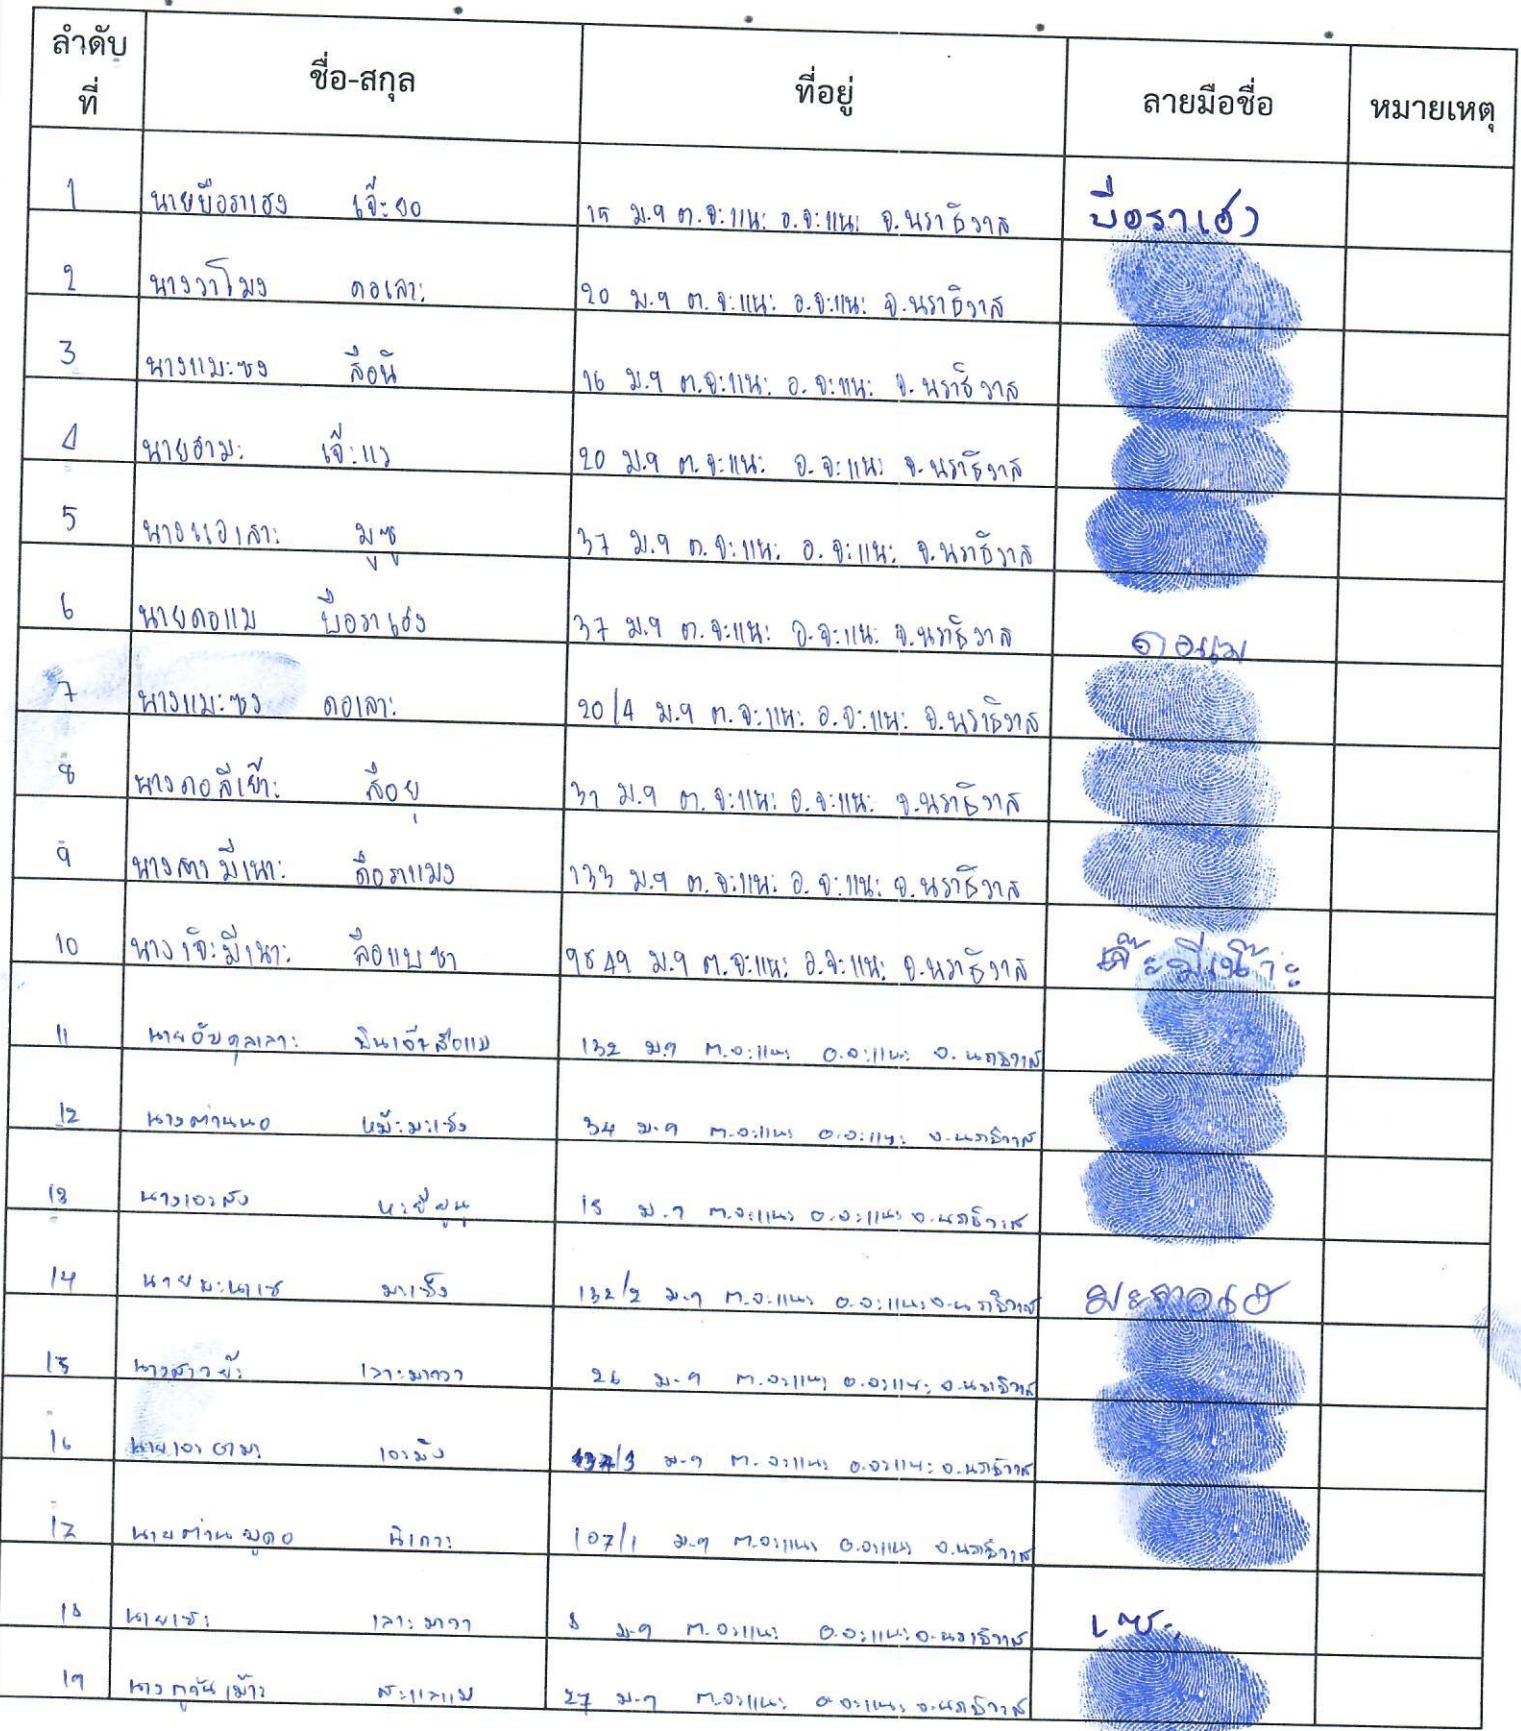 ลำดับที่ ชื่อ-สกุล ที่อยู่ ลายมือชื่อ หมายเหตุ
1 นายบือราเฮง เจ๊ะ 15 ม.9 ต.จะแนะ อ.จะแนะ จ.นราธิวาส บือราเฮง
2 นางวาโมง ดอเลาะ 20 ม.9 ต.จะแนะ อ.จะแนะ จ.นราธิวาส
3 นางแมะซง สือนิ 16 ม.9 ต.จะแนะ อ.จะแนะ จ.นราธิวาส
4 นายฮามะ เจ๊ะแว 20 ม.9 ต.จะแนะ อ.จะแนะ จ.นราธิวาส
5 นางแอเลาะ มูซู 37 ม.9 ต.จะแนะ อ.จะแนะ จ.นราธิวาส
6 นายดอแม บือราเฮง 37 ม.9 ต.จะแนะ อ.จะแนะ จ.นราธิวาส ดอแม
7 นางแมะซง ดอเลาะ 20/4 ม.9 ต.จะแนะ อ.จะแนะ จ.นราธิวาส
8 นาง สือยุ 31 ม.9 ต.จะแนะ อ.จะแนะ จ.นราธิวาส
9 นาง มีเนาะ ดือราแมง 133 ม.9 ต.จะแนะ อ.จะแนะ จ.นราธิวาส
10 นางเจ๊ะมีเนาะ ลือแบซา ม.9 ต.จะแนะ อ.จะแนะ จ.นราธิวาส
11 นายอับดุลเลาะ 132 ม.9 ต.จะแนะ อ.จะแนะ จ.นราธิวาส
12 นาง 34 ม.9 ต.จะแนะ อ.จะแนะ จ.นราธิวาส
13 นาง ม.9 ต.จะแนะ อ.จะแนะ จ.นราธิวาส
14 นาย มะเซ็ง 132/2 ม.9 ต.จะแนะ อ.จะแนะ จ.นราธิวาส
15 เลาะมาวา 26 ม.9 ต.จะแนะ อ.จะแนะ จ.นราธิวาส
16 นาย ม.9 ต.จะแนะ อ.จะแนะ จ.นราธิวาส
17 นาย 107/1 ม.9 ต.จะแนะ อ.จะแนะ จ.นราธิวาส
18 นายเซะ เลาะมาวา 8 ม.9 ต.จะแนะ อ.จะแนะ จ.นราธิวาส เซะ
19 นาง 27 ม.9 ต.จะแนะ อ.จะแนะ จ.นราธิวาส